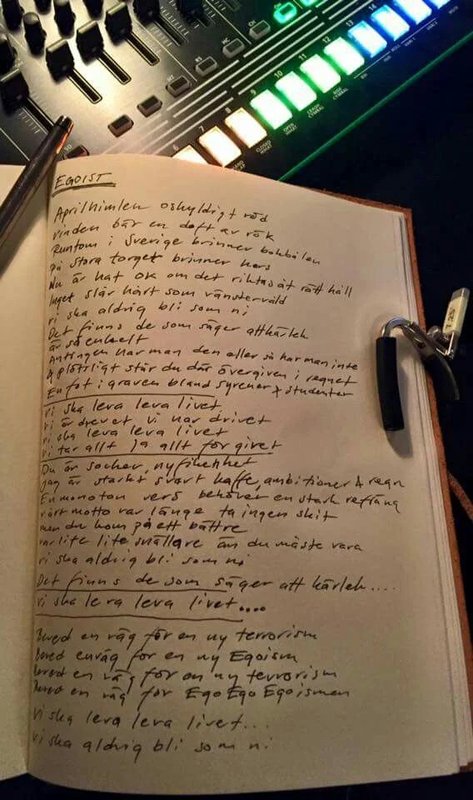 RT
CH
OH
14
13
12
11
10
9
8
7
6
OPEN HIHAT
CLOSED HIHAT
HAND CLAP
CRASH CYMBAL
RIDE CYMBAL
EGOIST
Aprilhimlen oskyldigt röd
vinden bär en doft av rök
Runtom i Sverige brinner bokbålen
På stora torget brinner kors
Nu är hat ok om det riktas åt rätt håll
Inget slår hårt som vänstervåld
vi ska aldrig bli som ni
Det finns de som säger att kärlek
är så enkelt
Antingen har man den eller så har man inte
& plötsligt står du där övergiven i regnet
En fot i graven bland syrener & studenter
vi ska leva leva livet
vi är drevet vi har drivet
vi ska leva leva livet
vi tar allt ja allt för givet
Du är socker, nyfikenhet
jag är starkt svart kaffe, ambitioner & regn
En monoton vers behöver en stark refräng
vårt motto var länge ta ingen skit
men du kom på ett bättre
var lite lite snällare än du måste vara
vi ska aldrig bli som ni
Det finns de som säger att kärlek....
vi ska leva leva livet....
Bered en väg för en ny terrorism
bered en väg för en ny Egoism
bered en väg för en ny terrorism
bered en väg för Ego Ego Egoismen
vi ska leva leva livet...
vi ska aldrig bli som ni